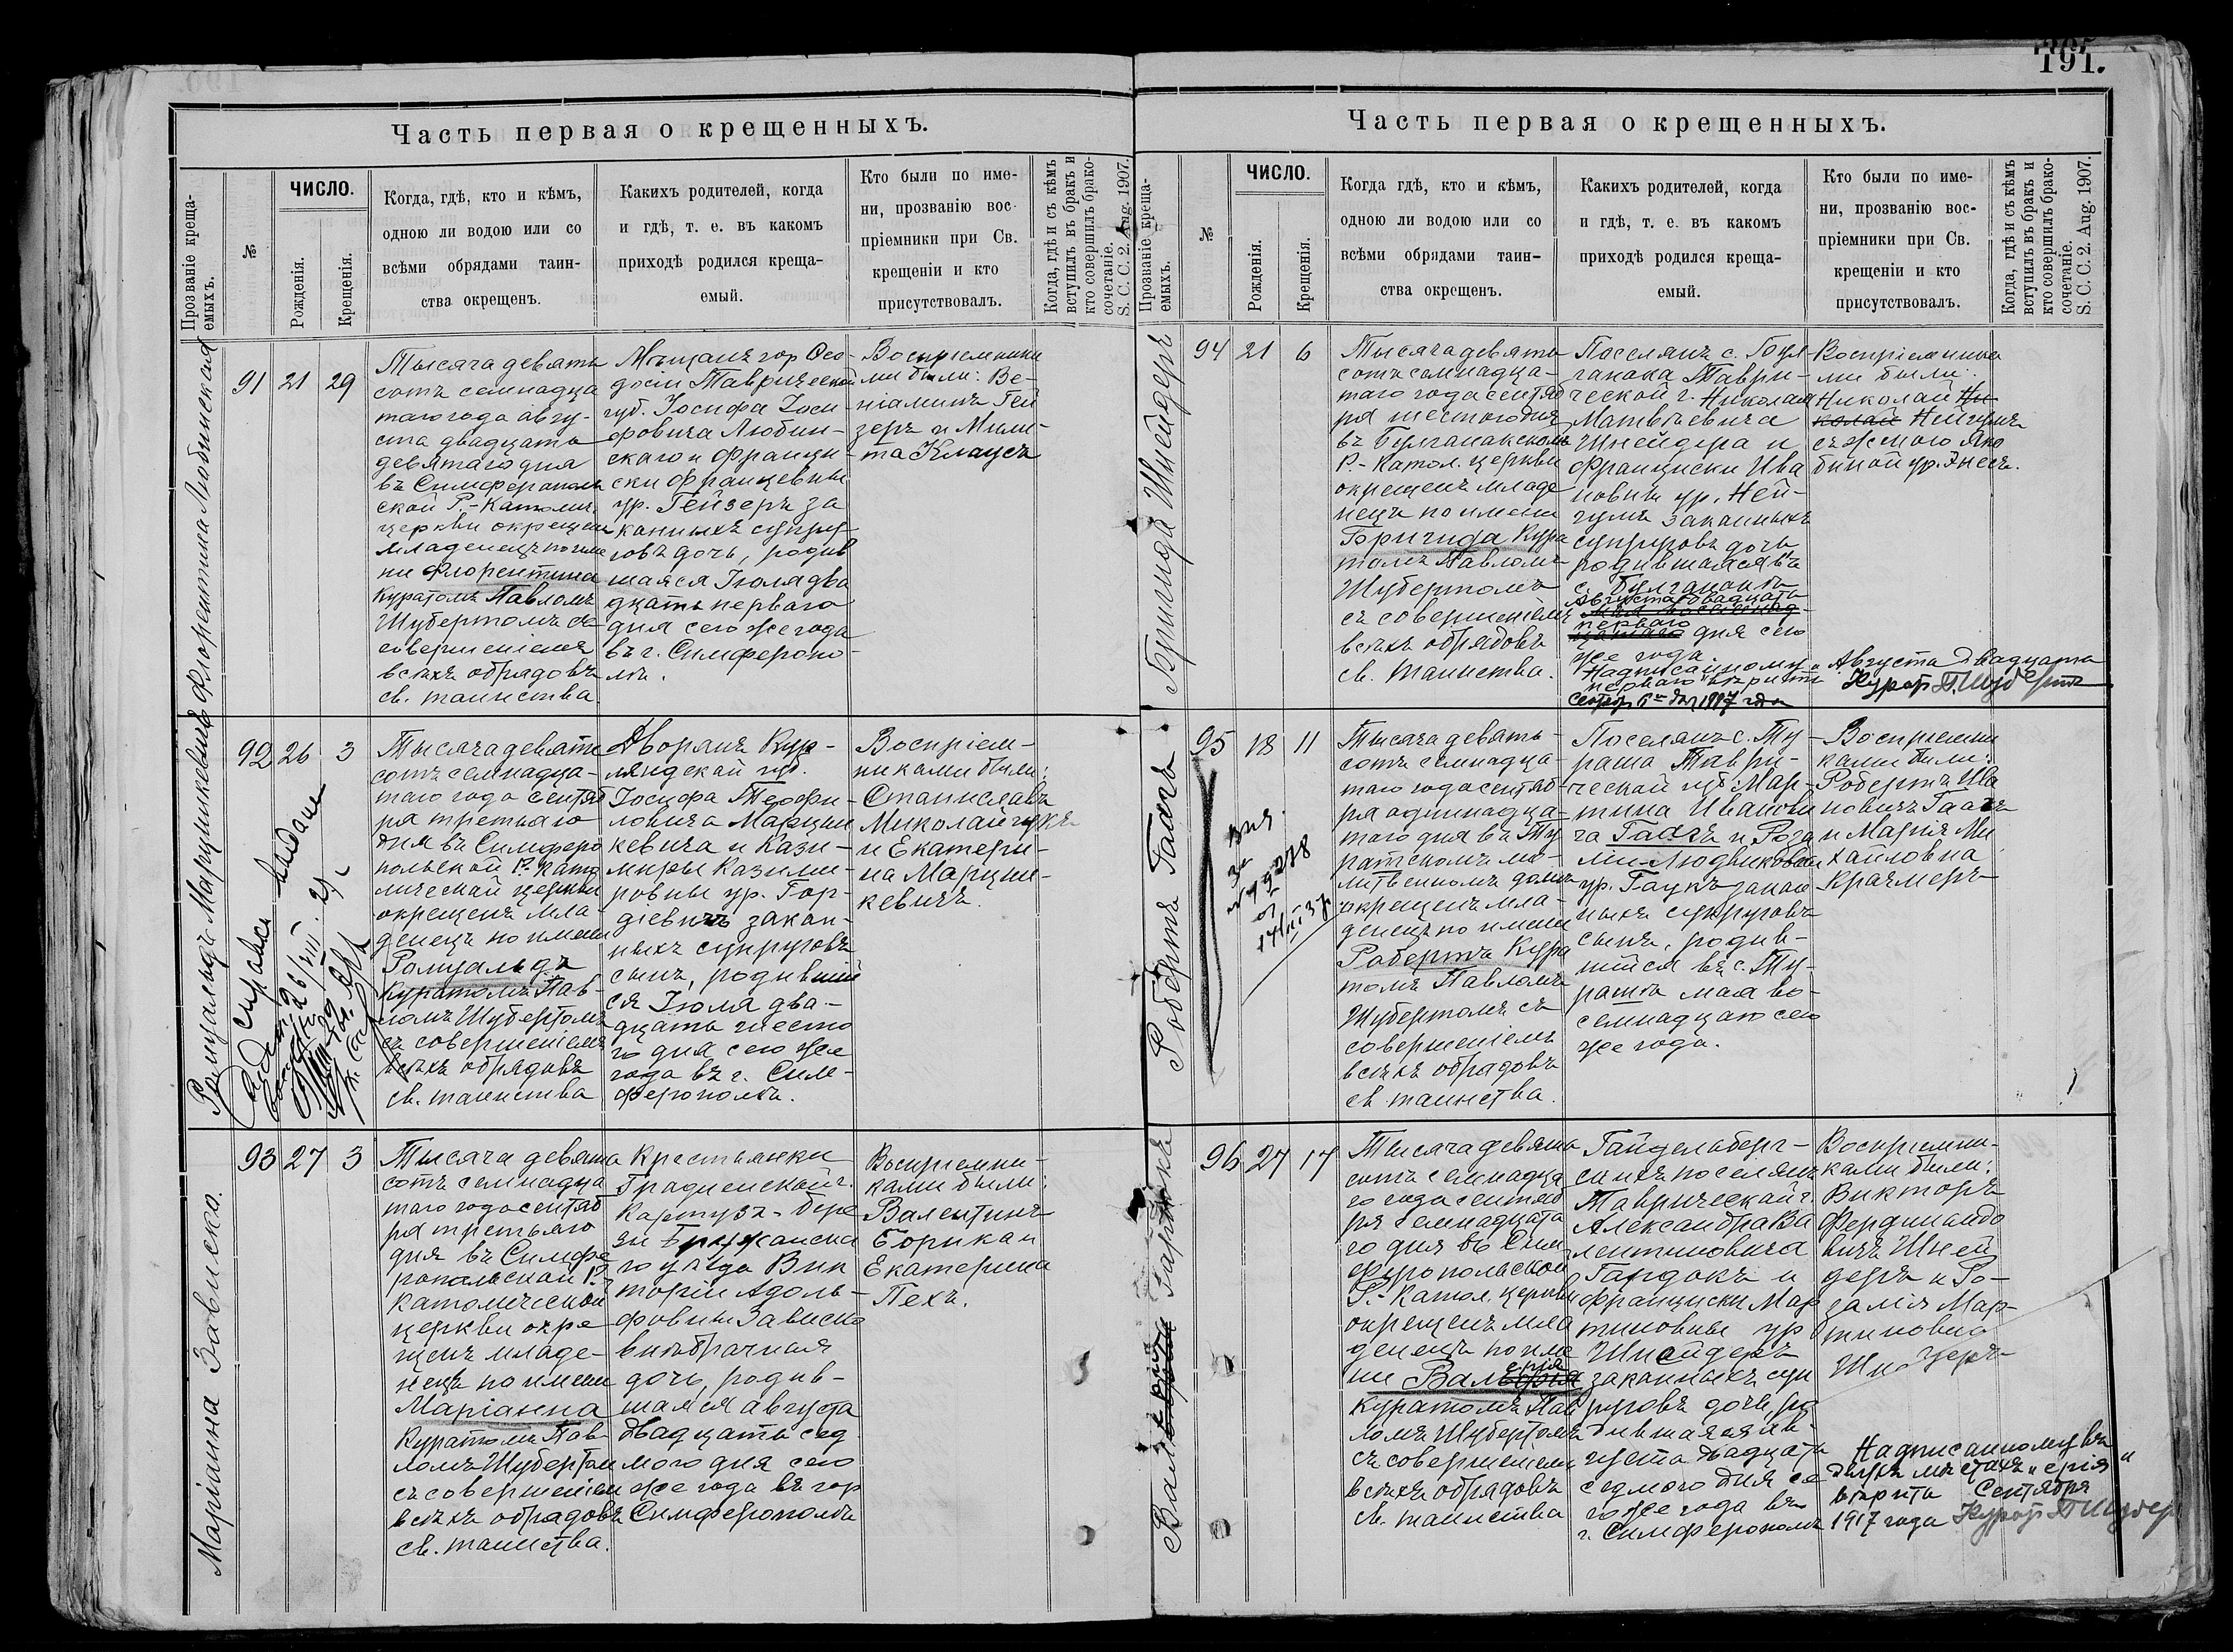 191.
Часть первая о крещенныхъ.
Прозваніе креща-
емыхъ.
№
ЧИСЛО.
Рожденія.
Крещенія.
Когда, гдѣ, кто и кѣмъ,
одною ли водою или со
всѣми обрядами таин-
ства окрещенъ.
Какихъ родителей, когда
и гдѣ, т. е. въ какомъ
приходѣ родился креща-
емый.
Кто были по име-
ни, прозванію вос-
пріемники при Св.
крещеніи и кто
присутствовалъ.
Когда, гдѣ и съ кѣмъ
вступилъ въ бракъ и
кто совершилъ брако-
сочетаніе.
S. C. C. 2. Aug. 1907.
Флорентина Любинская
91 21 29
Тысяча девять
сотъ семнадца
таго года авгу-
ста двадцать
девятаго дня
въ Симферополь
ской Р.-Католич.
церкви окрещенъ
младенецъ по име
ни Флорентина
Куратомъ Павломъ
Шубертомъ съ
совершеніемъ
всѣхъ обрядовъ
св. таинства.
Мѣщанъ гор Ѳео-
досіи Таврической
губ. Іосифа Іоси-
фовича Любин-
скаго и Франци-
ски Францевны
ур. Гейзеръ за
конныхъ супру
говъ дочь, родив
шаяся Іюля два
дцать перваго
дня сего же года
въ г. Симферопо-
лѣ.
Воспріемника
ми были: Ве-
ніаминъ Гей
зеръ и Мили-
та Клаусъ
Ромуальдъ Марцинкевичъ
92 26 3
Справка выдана
26/VIII
Тысяча девять
сотъ семнадца-
таго года сентяб
ря третьяго
дня въ Симферо
польской Р. Като
лической церкви
окрещенъ мла-
денецъ по имени
Ромуальдъ
Куратомъ Пав-
ломъ Шубертомъ
съ совершеніемъ
всѣхъ обрядовъ
св. таинства
Дворянъ Кур-
ляндской губ.
Іосифа Теофи-
ловича Марцин
кевича и Кази-
миры Казими-
ровны ур. Гор-
діевичъ закон-
ныхъ супруговъ
сынъ, родивший
ся Іюля два-
дцать шесто
го дня сего же
года въ г. Сим-
ферополѣ.
Воспріем-
никами были:
Станиславъ
Миколайчукъ
и Екатери-
на Марцин-
кевичъ.
Маріанна Зависска.
93 27 3
Тысяча девять
сотъ семнадца
таго года сентяб
ря третьяго
дня въ Симфе
ропольской Р.
Католической
церкви окре-
щенъ младе-
нецъ по имени
Маріанна
Куратомъ Пав
ломъ Шубертом
съ совершеніемъ
всѣхъ обрядовъ
св. таинства.
Крестьянки
Гродненской г.
Картузъ-бере
зи Пружанска
го уѣзда Вик
торіи Адоль-
фовны Зависка
внѣбрачная
дочь, родив-
шаяся августа
двадцать сед
мого дня сего
же года въ гор
Симферополѣ
Воспріемни-
ками были:
Валентинъ
Борикан
Екатерина
Пехъ.
Часть первая о крещенныхъ.
Прозваніе креща-
емыхъ.
№
ЧИСЛО.
Рожденія.
Крещенія.
Когда гдѣ, кто и кѣмъ,
одною ли водою или со
всѣми обрядами таин-
ства окрещенъ.
Какихъ родителей, когда
и гдѣ, т. е. въ какомъ
приходѣ родился креща-
емый.
Кто были по име-
ни, прозванію вос-
пріемники при Св.
крещеніи и кто
присутствовалъ.
Когда, гдѣ и съ кѣмъ
вступилъ въ бракъ и
кто совершилъ брако-
сочетаніе.
S. C. C. 2. Aug. 1907.
Бригида Шнейдеръ
94 21 6
Тысяча девять
сотъ семнадца-
таго года сентяб
ря шестого дня
въ Булганакской
Р.-Катол. церкви
окрещенъ младе
нецъ по имени
Бригида Кура
томъ Павломъ
Шубертомъ
съ совершеніемъ
всѣхъ обрядовъ
св. таинства.
Поселянъ с. Бул-
ганака Таври-
ческой г. Николая
Матвѣевича
Шнейдера и
Франциски Ива
новны ур. Ней-
гумъ законныхъ
супруговъ дочь
родившаяся въ
с. Булганакѣ
Августа двадцать
перваго
дня сего
же года.
Надписанному „Августа двадцать
перваго" вѣрить
Сентяб. 6го дня 1917 года
Курат П. Шубертъ
Воспріемника
ми были:
Николай Ни-
колай Нейгумъ
съ женою Яко
биной ур. Энесъ.
Робертъ Гаагъ
95 18 11
Тысяча девять-
сотъ семнадца-
таго года сентяб-
ря одиннадца-
таго дня въ Ту
ратскомъ мо-
литвенномъ домѣ
окрещенъ мла-
денецъ по имени
Робертъ Кура
томъ Павломъ
Шубертомъ съ
совершеніемъ
всѣхъ обрядовъ
св. таинства.
Поселянъ с. Ту-
рата Таври-
ческой губ Мар-
тина Иванови
ча Гаагъ и Роза
ліи Людвиковны
ур. Гаукъ закон
ныхъ супруговъ
сынъ, родив-
шійся въ с. Ту-
ратѣ мая во-
семнадцаго сего
же года.
Воспріемни
ками были:
Робертъ Ива
новичъ Гаагъ
и Марія Ми
хайловна
Крачмеръ
96 27 17
Тысяча девять
сотъ семнадца
го года сентяб
ря семнадцата
го дня въ Сим
феропольской
Р.-Катол. церкви
окрещенъ мла
денецъ по име
ни Валерія
Куратомъ Пав
ломъ Шубертомъ
съ совершеніемъ
всѣхъ обрядовъ
св. таинства
Гайдельберг-
скихъ поселянъ
Таврической г.
Александра Ва
лентиновича
и
Франциски Мар
тиновны ур
Шнейдеръ
законныхъ суп
руговъ дочь, ро
дившаяся Ав-
густа двадцать
седмого дня се
го же года въ
г. Симферополѣ
Воспріемни-
ками были:
Викторъ
Фердинандо
вичъ Шней
деръ и Ро-
залія Мар-
тиновна
Шнейдеръ
Надписанному въ
двухъ мѣстахъ „ерія"
вѣрить Сентября
1917 года Курат П Шубер